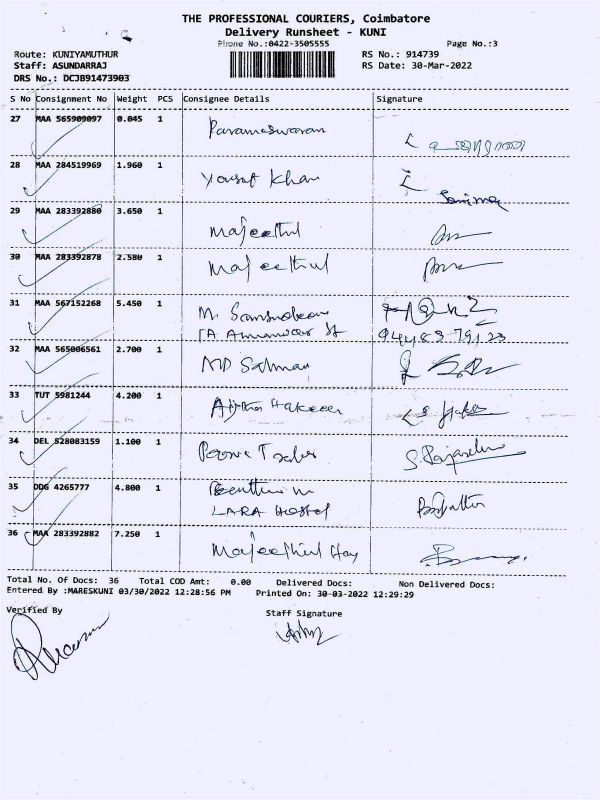 THE PROFESSIONAL COURIERS, Coimbatore
Delivery Runsheet - KUNI
Phone No.:0422-3505555 Page No.:3
Route: KUNIYAMUTHUR RS No.: 914739
Staff: ASUNDARRAJ RS Date: 30-Mar-2022
DRS No.: DCJB91473903
S No Consignment No Weight PCS Consignee Details Signature
27 MAA 565909097 0.045 1 Parameswaran
28 MAA 284519969 1.960 1 Yousuf Khan
29 MAA 283392880 3.650 1 Majeethul
30 MAA 283392878 2.580 1 Majeethul
31 MAA 567152268 5.450 1 M.
32 MAA 565006561 2.700 1 MD Salman
33 TUT 5981244 4.200 1
34 DEL 528083159 1.100 1
35 DDG 4265777 4.800 1
LARA Hostel
36 MAA 283392882 7.250 1 Majeethul Hay
Total No. Of Docs: 36 Total COD Amt: 0.00 Delivered Docs: Non Delivered Docs:
Entered By :MARESKUNI 03/30/2022 12:28:56 PM Printed On: 30-03-2022 12:29:29
Verified By Staff Signature